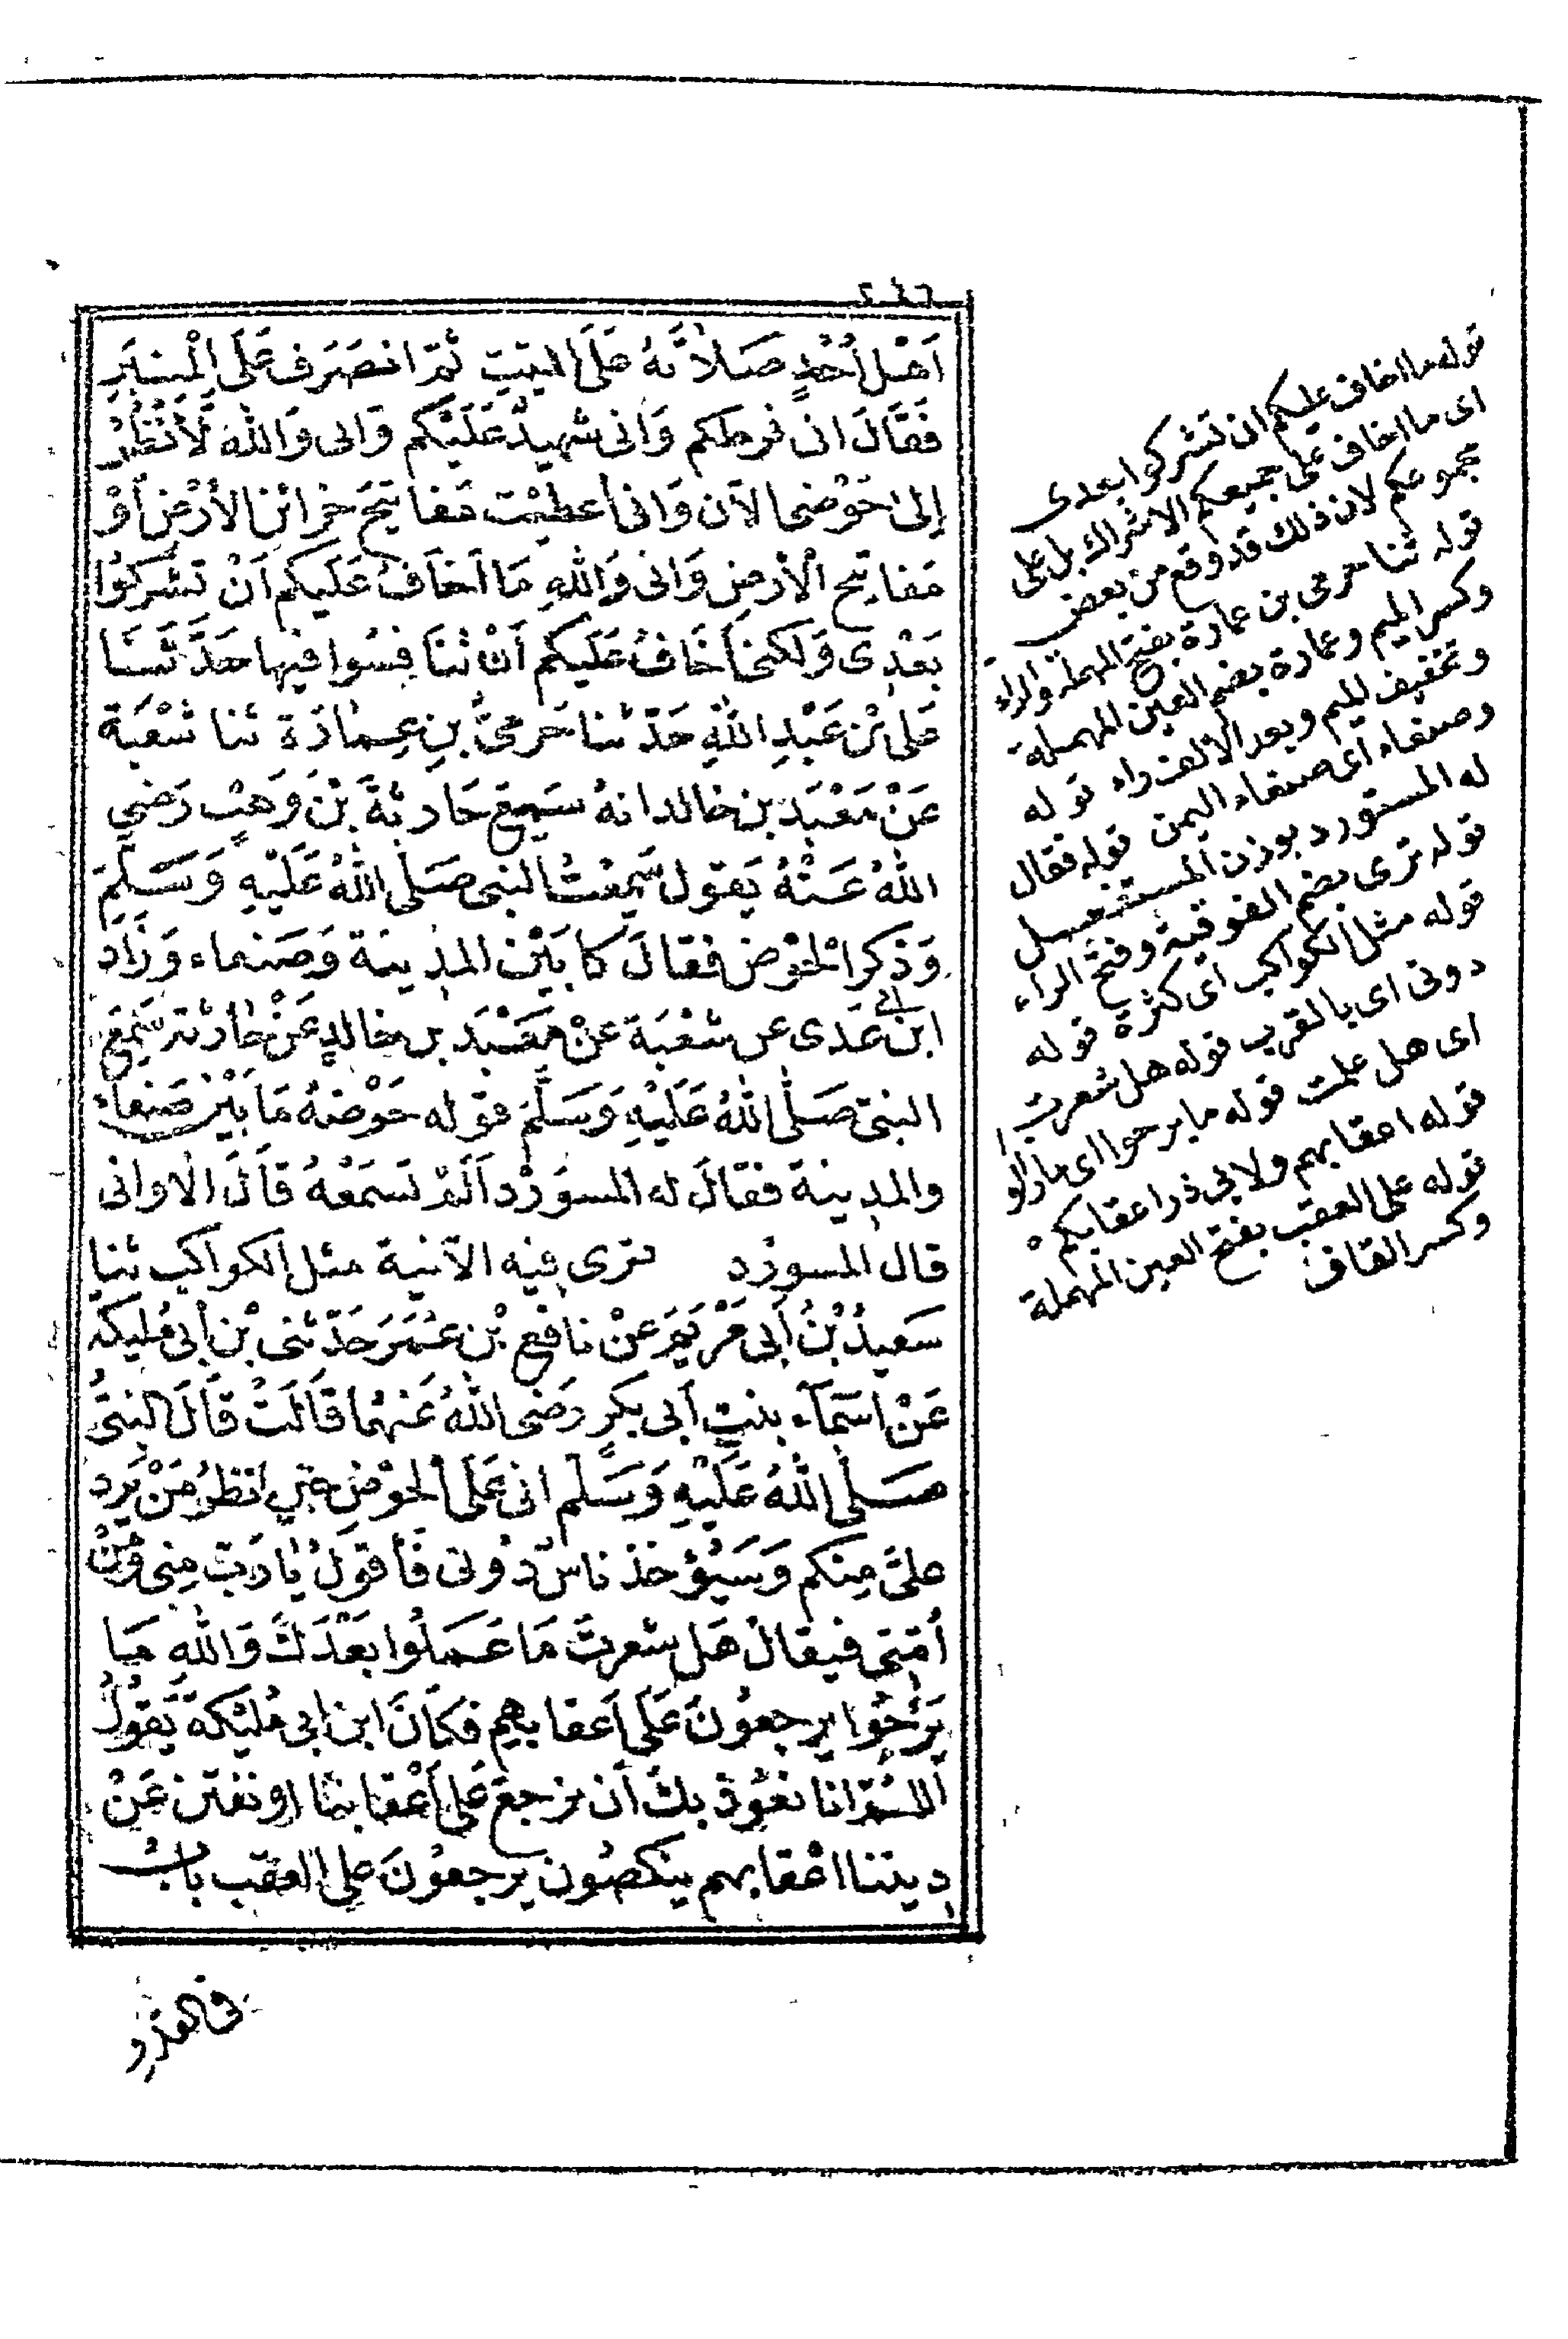 ٢٤٦
اَهْل اُحُدٍ صَلَاتَهُ عَلَى الميّتِ ثمّ انصَرَف عَلَى الْمنبَرِ
فَقَالَ انى فرطكم وَانى شهيدٌ عَلَيْكم وَانى وَاللهِ لَأَنْظُرُ
إلى حَوْضى الآن وَانى أعطِيْت مَفاتيحَ خزائن الأرْض أوْ
مَفاتيح الْأرض وَانى وَاللهِ مَا اَخَافُ عَلَيكم اَنْ تشركوُا
بَعْدِى وَلكنى أَخَافُ عَلَيكم أَنْ تنَافسُوا فيها حَدَّثَنَا
عَلى بْن عَبْدِ اللهِ حَدّثنا حَرمىُّ بنِ عِمارَة ثنا شعْبَة
عَنْ مَعْبَد بن خالد انهُ سَمِعَ حَارثةَ بْنَ وَهبٍ رَضي
اللهُ عَنْهُ يَقول سَمِعْت النبى صَلى اللهُ عَلَيْهِ وَسَلّمَ
وَذكرَ الْحَوْض فقالَ كَمَا بَيْن المدِينة وَصَنعاء وَزَاد
ابن أبى عَدى عن شعْبَة عَنْ مَعْبَد بن خالدٍ عَنْ حارثة سَمِعَ
النبىّ صَلّى اللهُ عَلَيْهِ وَسَلّمَ قوله حَوْضهُ مَا بَيْن صَنعَاء
والمدِينة فقالَ له المسوَرْد اَلَمْ تَسمَعْهُ قالَ الاوانى
قال المسورْد ترى فيه الآنية مثل الكواكب ثنا
سَعيدُ بْنُ أبى مَرْيَم عَنْ نافع بْن عُمَرَ حَدّثنى بْن أبى مُليكة
عَنْ اسَمآء بنتِ أبى بكرٍ رَضى اللهُ عَنهما قَالَتْ قَالَ النبىُّ
صَلى اللهُ عَلَيْهِ وَسَلّم انى عَلَى الحوْضِ حتى انظرُ مَنْ يَرد
علىَّ مِنكم وَسَيُؤخذ ناسٌ دُونى فَأقولُ يا رَبّ مِنى وَمنْ
أمّتى فيقالُ هَل شعرتَ مَا عَملُوا بَعْدَكَ وَاللهِ مَا
بَرحُوا يرجعوُنَ عَلَى أَعقابهِم فكَانَ ابن ابى مُليْكة يَقولُ
اَللهُمّ انا نعُوذ بكَ أن نرجعَ عَلى أعْقابنا او نفتن عَنْ
ديننا اعْقابهم ينكصُون يرجعوُنَ على العقب بابُ
فى القدر
قوله ما اخاف عليكم ان تشركوا بعدى
اى ما اخاف على جميعكم الاشراك بل على
مجموعكم لان ذلك قد وقع من بعض
قوله ثنا حرمى بن عمارة بفتح المهملة والراء
وكسر الميم وعمارة بضم العين المهملة
وتخفيف الميم وبعد الالف راء قوله
وصنعاء اى صنعاء اليمن قوله فقال
له المستورد بوزن المستفعل
قوله ترى بضم الفوقية وفتح الراء
قوله مثل الكواكب اى كثرة قوله
دونى اى بالقرب قوله هل شعرت
اى هل علمت قوله ما برحوا اى ما زالوا
قوله اعقابهم ولابى ذر اعقابكم
قوله على العقب بفتح العين المهملة
وكسر القاف